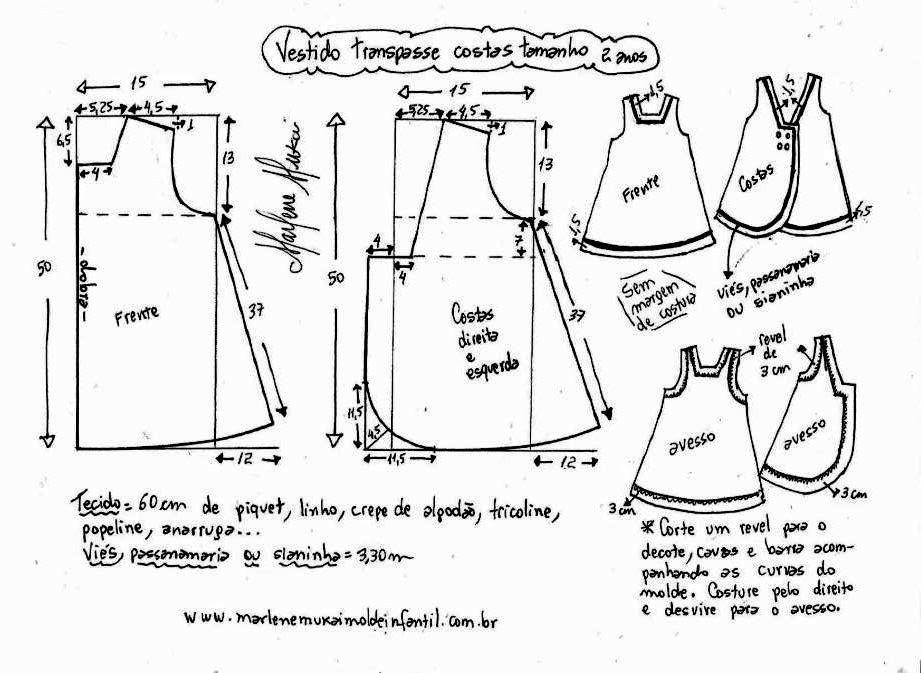 Vestido transpasse costas tamanho 2 anos
15
5,25
4,5
1
6,5
4
13
50
dobra
Frente
37
12
Marlene Mukai
15
5,25
4,5
1
13
50
4
4
7
Costas
direita
e
esquerda
37
11,5
4,5
11,5
12
1,5
Frente
1,5
1,5
Costas
1,5
Sem
margem
de costura
viés, passanamaria
ou sianinha
revel
de
3 cm
avesso
avesso
3 cm
3 cm
Tecido = 60 cm de piquet, linho, crepe de algodão, tricoline,
popeline, anarruga...
Viés, passanamaria ou sianinha = 3,30 m
* Corte um revel para o
decote, cavas e barra acom-
panhando as curvas do
molde. Costure pelo direito
e desvire para o avesso.
www.marlenemukaimoldeinfantil.com.br